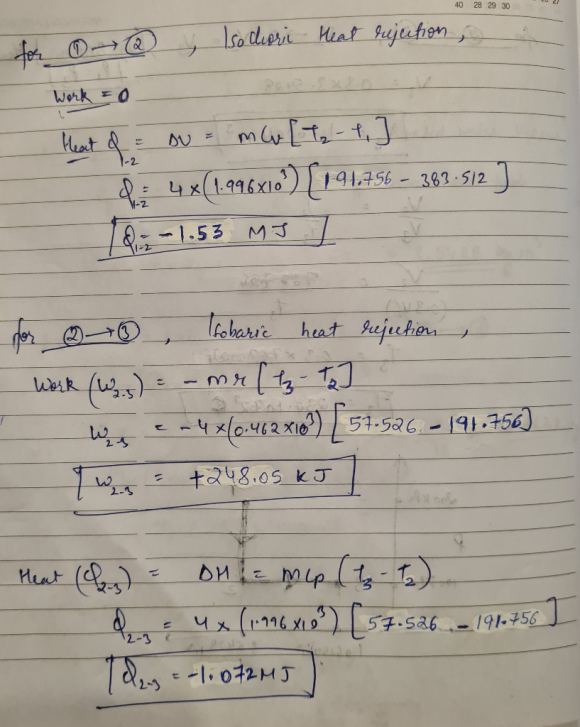 40 28 29 30
for ①→② , Isochoric Heat rejection,
Work = 0
Heat Q₁₋₂ = ΔU = mCv [T₂ - T₁]
Q₁₋₂ = 4 × (1.996×10³) [191.756 - 383.512]
Q₁₋₂ = -1.53 MJ
for ②→③ , Isobaric heat rejection,
Work (W₂₋₃) = - mr [T₃ - T₂]
W₂₋₃ = -4 × (0.462×10³) [57.526 - 191.756]
W₂₋₃ = +248.05 KJ
Heat (Q₂₋₃) = ΔH = mCp (T₃ - T₂)
Q₂₋₃ = 4 × (1.996×10³) [57.526 - 191.756]
Q₂₋₃ = -1.072 MJ